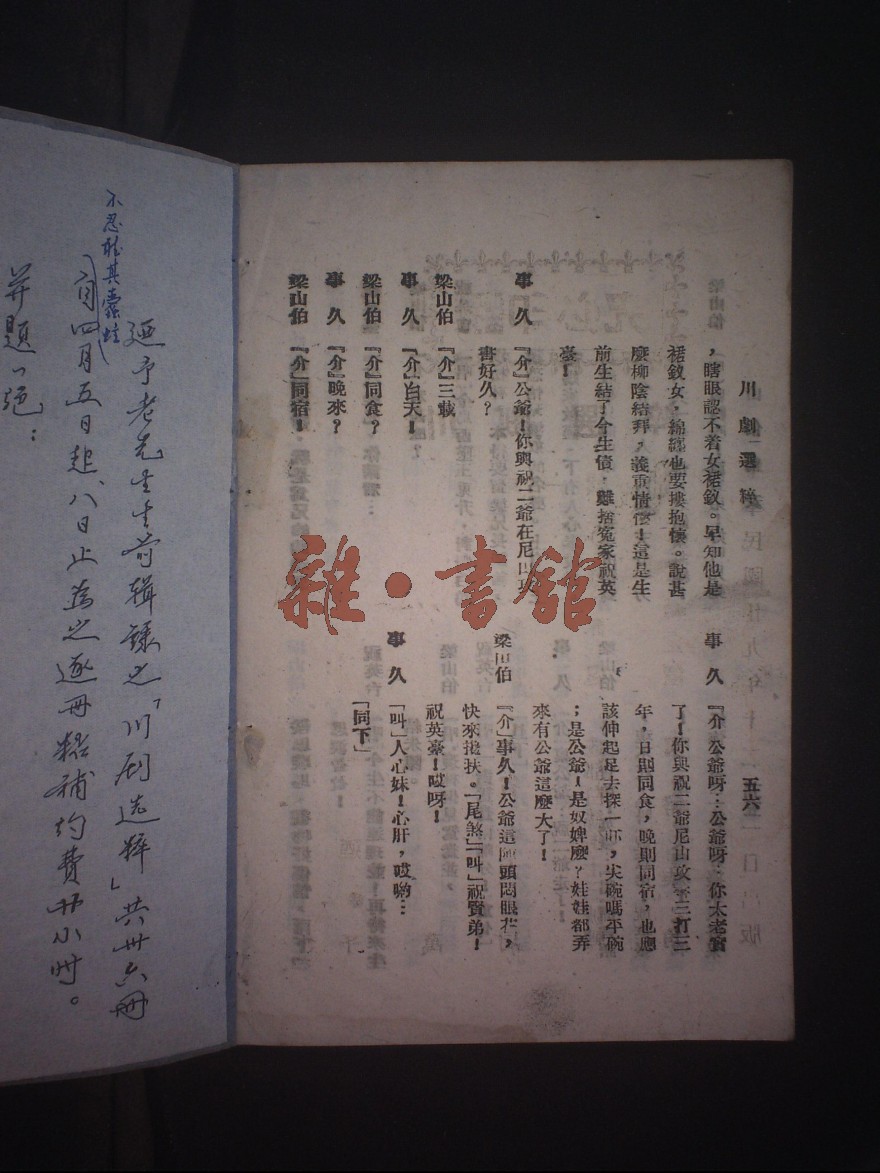 川劇選粹
五六
，瞎眼認不着女裙釵。早知他是
裙釵女，綿纏也要摟抱懷。說甚
麼柳陰結拜，義重情懷！這是生
前生結了今生債，難捨冤家祝英
臺！
事久 『介』公爺！你與祝二爺在尼山攻
書好久？
梁山伯 『介』三載
事久 『介』白天！
梁山伯 『介』同食？
事久 『介』晚來？
梁山伯 『介』同宿！
事久 『介 公爺呀：公爺呀：你太老實
了！你與祝二爺尼山攻書三打三
年，日則同食，晚則同宿，也應
該伸起足去探一下，尖碗嗎平碗
；是公爺！是奴婢麼？娃娃都弄
來有公爺這麼大了！
梁山伯 『介』事久！公爺這陣頭悶眼花，
快來攙扶。「尾煞」「叫」祝賢弟！
祝英臺！哎呀！
事久 「叫」人心妹！心肝，哎喲：：
「同下」
老先生生前輯錄之「川剧选粹」共卅六冊
不忍聽其蠹蛀
自四月五日起八日止為之逐冊粘補約費廿小时。
并題一绝：
雜·書館